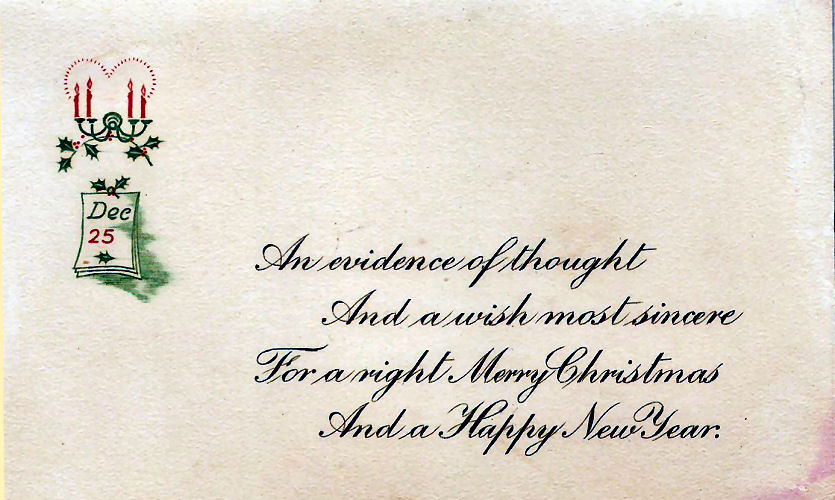 Dec
25
An evidence of thought
And a wish most sincere
For a right Merry Christmas
And a Happy New Year.